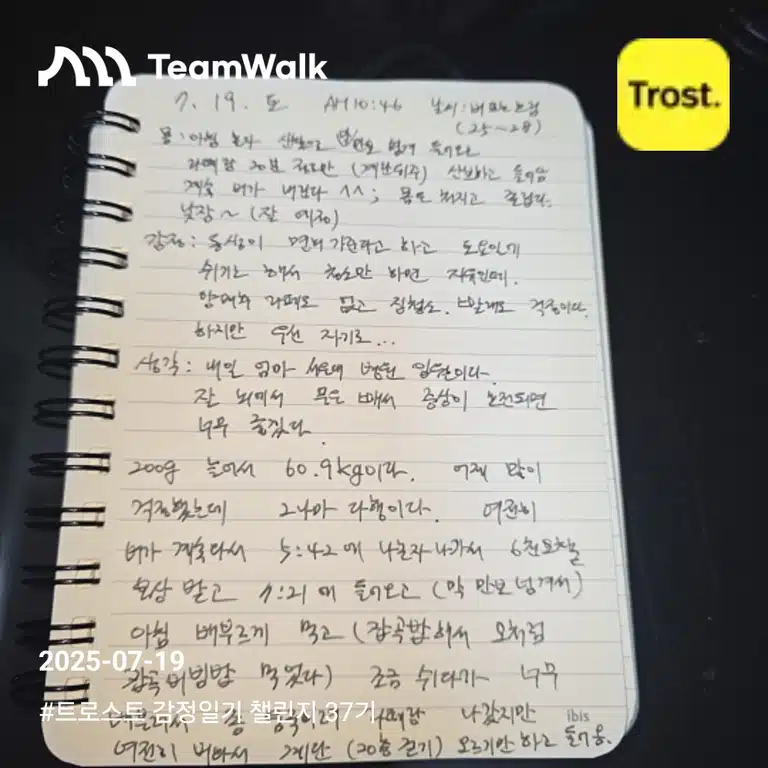 TeamWalk
Trost.
7. 19. 토 AM 10:46 날씨: 비
(25~28)
몸: 아침 혼자 산발으로 만보 넘게 들어오고
20분 정도만 (계단위주) 산보하고 들어옴
계속 비가 내린다 ^^; 몸도 처지고 졸립다.
낮잠~ (잘 예정)
감정: 동생이 면회 가준다고 하고 토요일에
쉬기도 해서 청소만 하면 자유인데.
없고 집청소. 빨래도 걱정이다.
하지만 우선 자기로...
생각: 내일 엄마 서울대 병원 입원이다.
잘 뇌에서 물도 빼서 증상이 호전되면
너무 좋겠다.
200g 늘어서 60.9kg이다. 어제 많이
걱정했는데 그나마 다행이다. 여전히
비가 계속와서 5:42에 나혼자 나가서 6천보
보상 받고 7:21에 들어오고 (막 만보 넘겨서)
아침 배부르게 먹고 (잡곡밥해서 모처럼
잡곡비빔밥 먹었다) 조금 쉬다가 너무
나갔지만
여전히 비와서 계단 (20층 걷기) 오르기만 하고 들어옴.
2025-07-19
#트로스트 감정일기 챌린지 37기
ibis